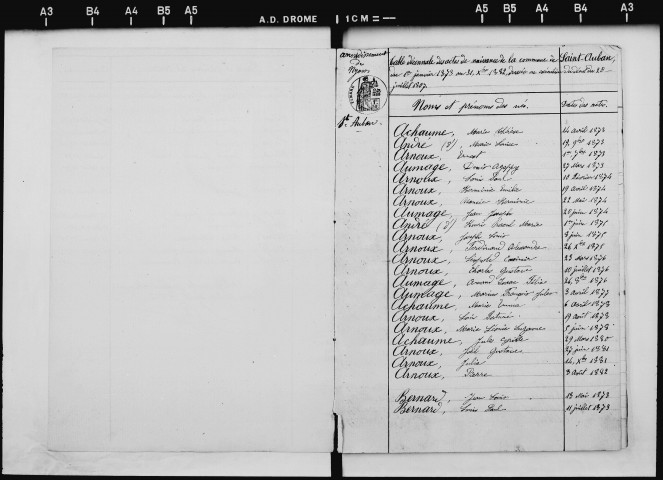 A3 B4 A4 B5 A5 A.D. DROME 1 CM A5 B5 A4 B4 A3
arrondissement
de
Nyons
St. Auban.
Table décennale des actes de naissance de la commune de Saint-Auban,
du 1er janvier 1873 au 31 Xbre 1882, dressée en
juillet 1807.
Noms et prénoms des nés. Dates des actes.
Achaume, Marie 14 avril 1873
André (d') Marie Louise 19 9bre 1873
Arnoux, Ernest 1er 7bre 1873
Aumage, Denis Agappy 27 Mars 1873
Arnoux, Louis Paul 18 février 1874
Arnoux, Herminie Emilie 19 avril 1874
Arnoux, Herminie 22 Mai 1874
Aumage, Jean Joseph 28 juin 1874
André (d') Henri Raoul Marie 1er juin 1875
Arnoux, Joseph Louis 3 juin 1875
Arnoux, Ferdinand Alexandre 26 Xbre 1875
Arnoux, Léopold Casimir 23 Mars 1876
Arnoux, Charles Gustave 10 juillet 1876
Aumage, Félix 26 8bre 1876
Aumage, Marius François Jules 3 avril 1877
Achaume, Marie Emma 6 avril 1878
Arnoux, Louis 19 avril 1878
Arnoux, Marie Léonie Suzanne 5 juin 1878
Achaume, Jules Cyrille 29 Mars 1880
Arnoux, Joël Gustave 27 juin 1881
Arnoux, Julie 14 Xbre 1881
Arnoux, Pierre 3 août 1882
Bernard, Jean Louis 13 Mai 1873
Bernard, Louis Paul 11 juillet 1873